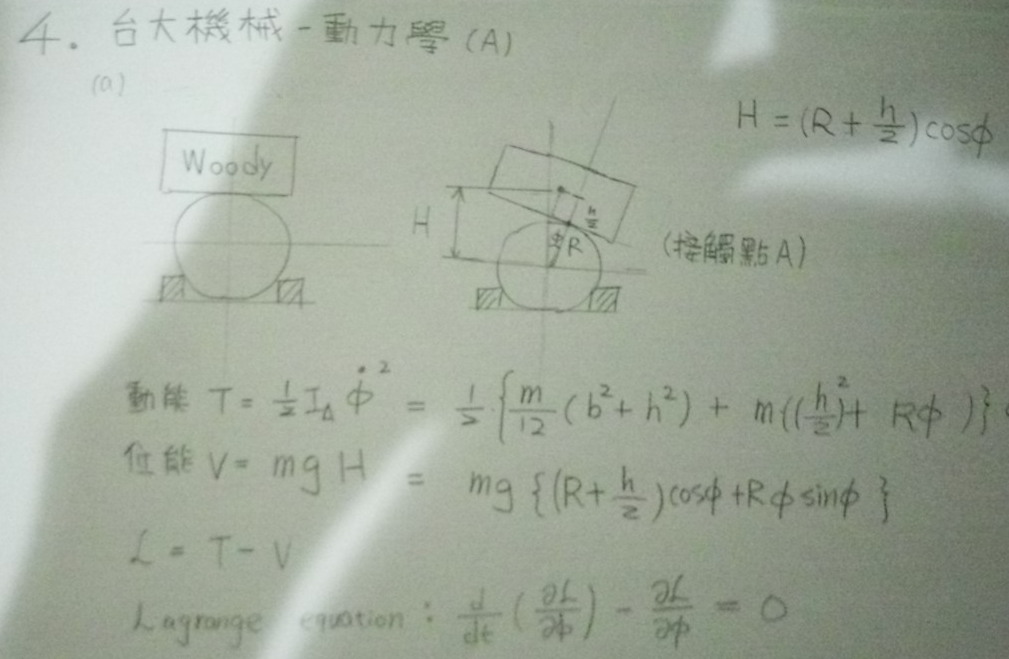 4. 台大機械 - 動力學 (A)
(a)
H = (R + h/2) cosϕ
Woody
H
h/2
ϕ R
(接觸點 A)
動能 T = 1/2 I_A ϕ̇² = 1/2 · {m/12 (b² + h²) + m((h/2)² + Rϕ )}
位能 V = mgH = mg {(R + h/2) cosϕ + Rϕ sinϕ }
L = T - V
Lagrange equation : d/dt (∂L/∂ϕ̇) - ∂L/∂ϕ = 0